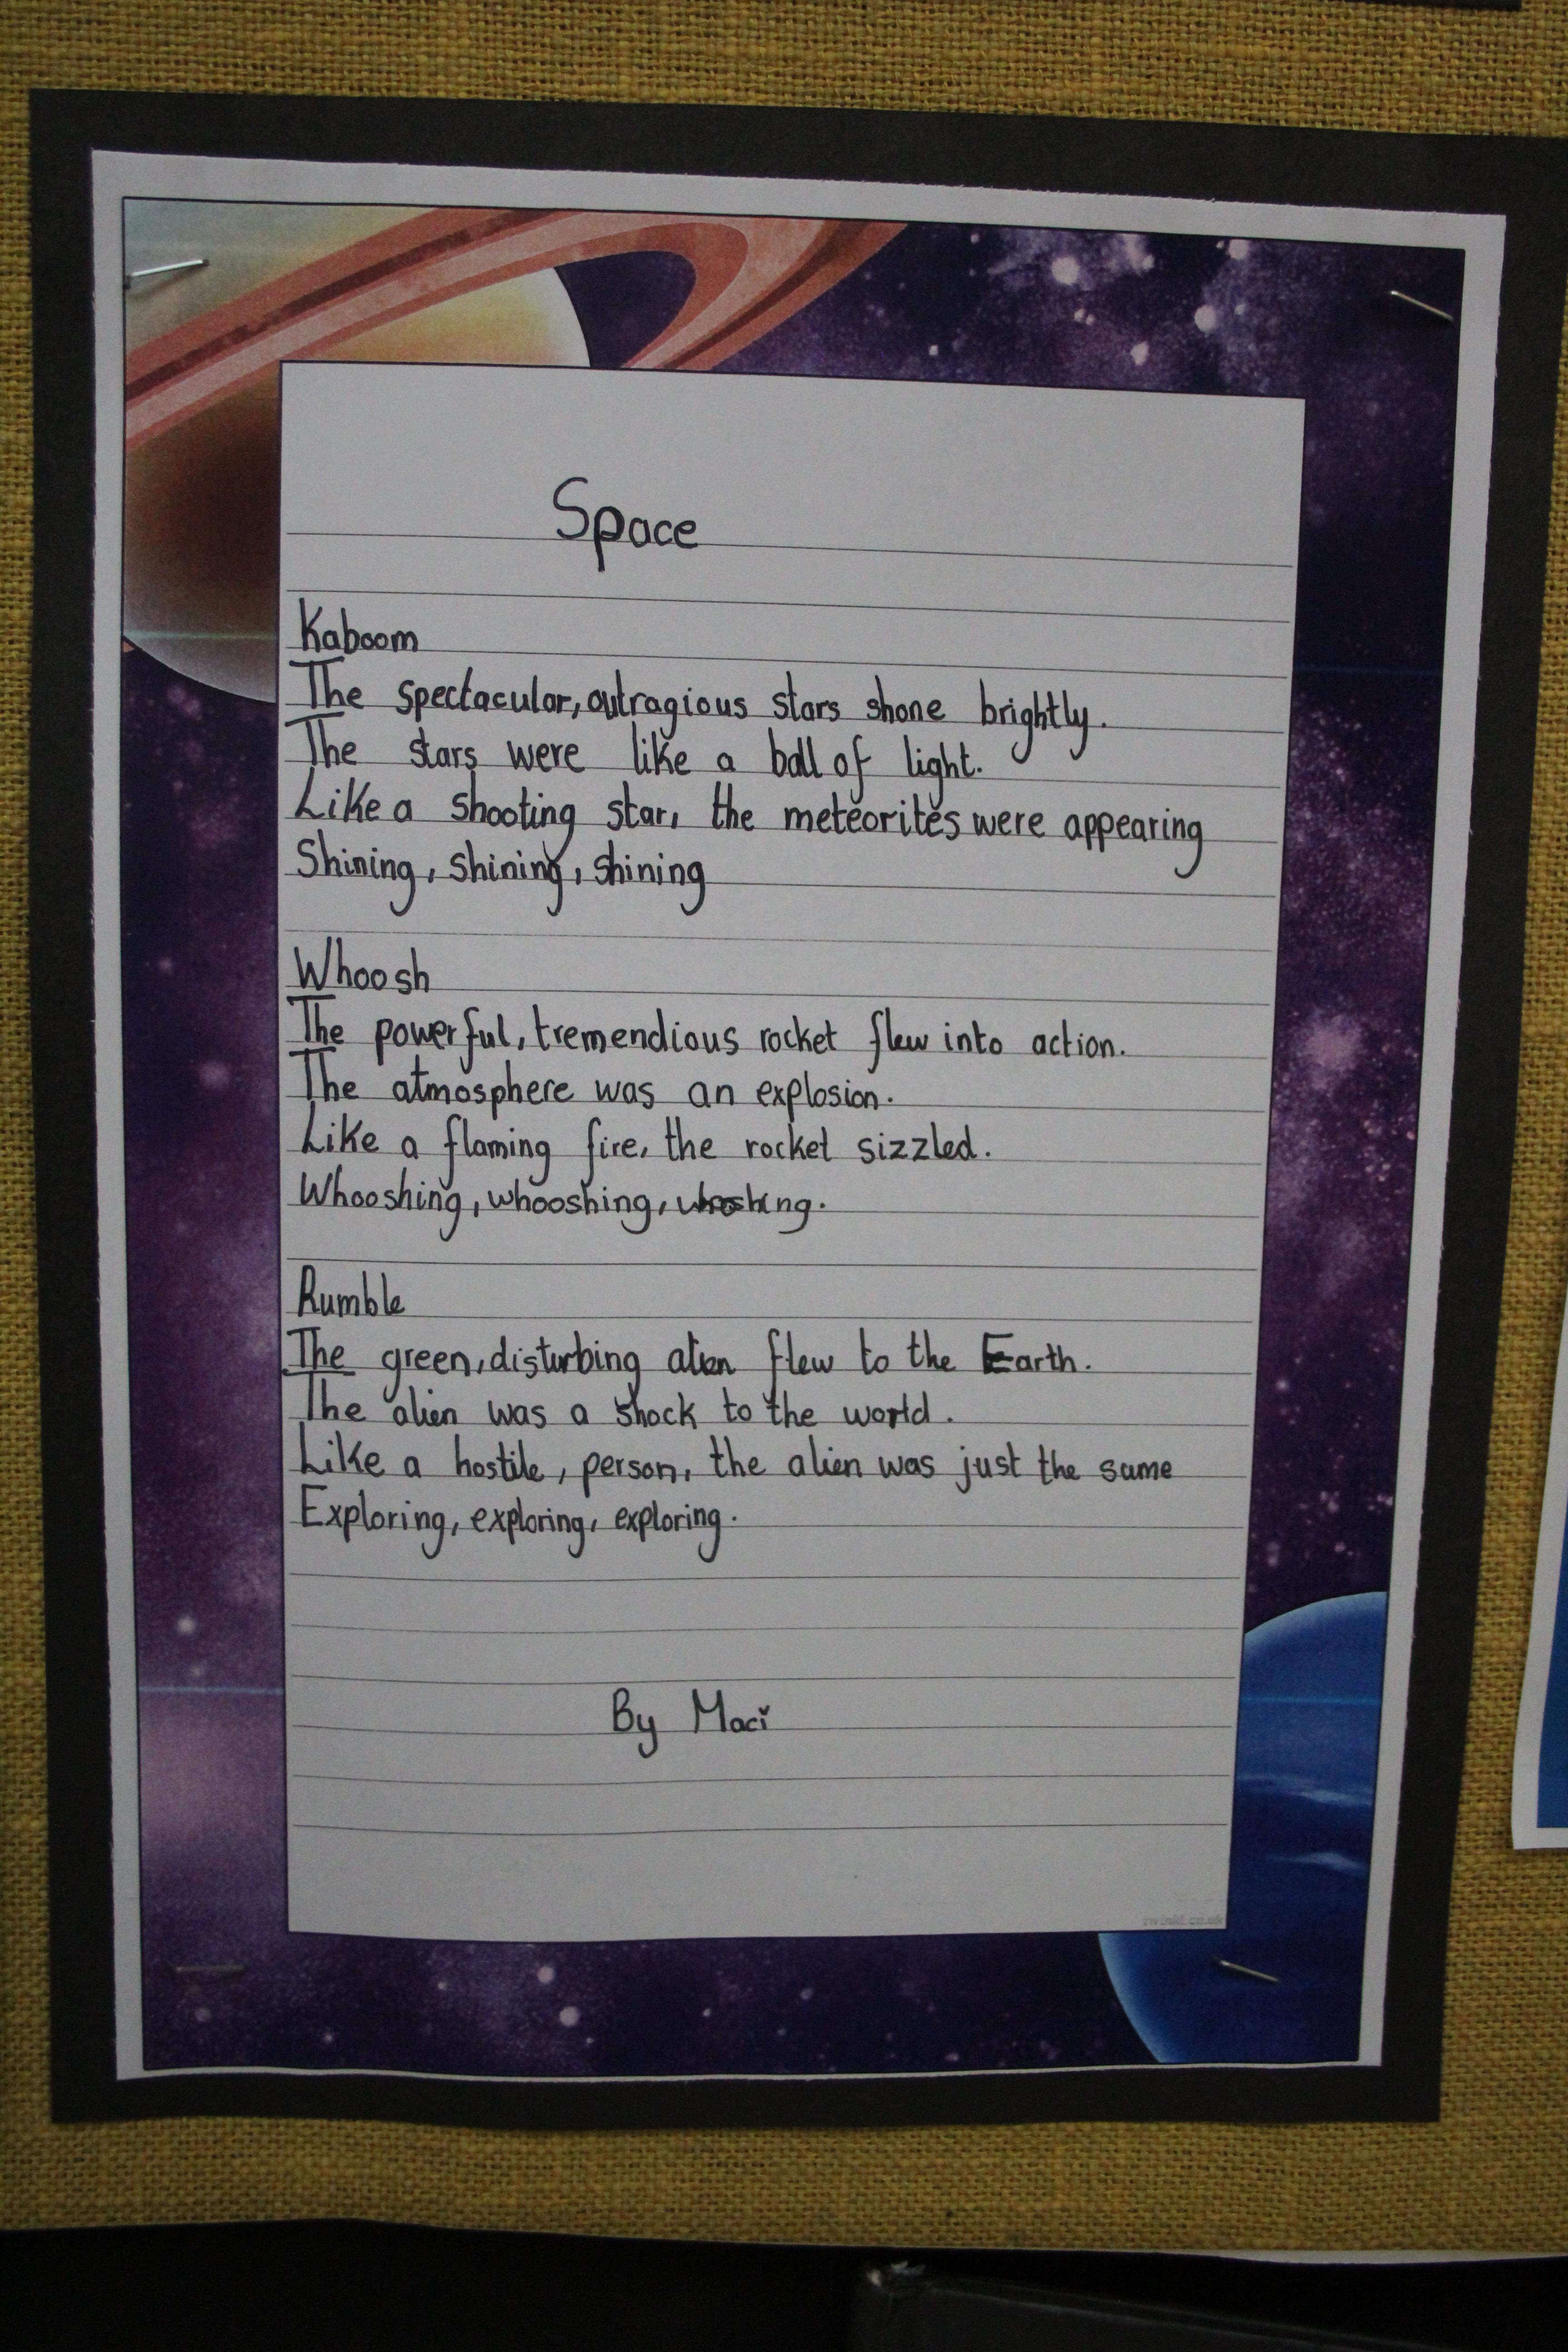 Space
Kaboom
The spectacular, outragious stars shone brightly.
The stars were like a ball of light.
Like a shooting star, the meteorites were appearing
Shining, shining, shining
Whoosh
The powerful, tremendious rocket flew into action.
The atmosphere was an explosion.
Like a flaming fire, the rocket sizzled.
Whooshing, whooshing, whoshing.
Rumble
The green, disturbing alien flew to the Earth.
The alien was a shock to the world.
Like a hostile, person, the alien was just the same
Exploring, exploring, exploring.
By Maci
twinkl.co.uk